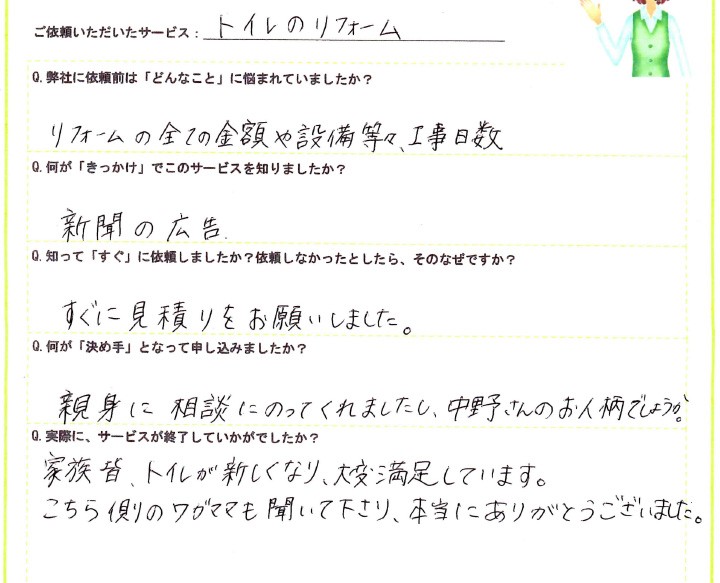 ご依頼いただいたサービス： トイレのリフォーム
Q. 弊社に依頼前は「どんなこと」に悩まれていましたか？
リフォームの全ての金額や設備等々、工事日数
Q. 何が「きっかけ」でこのサービスを知りましたか？
新聞の広告.
Q. 知って「すぐ」に依頼しましたか？依頼しなかったとしたら、そのなぜですか？
すぐに見積りをお願いしました。
Q. 何が「決め手」となって申し込みましたか？
親身に相談にのってくれましたし、中野さんのお人柄でしょうか。
Q. 実際に、サービスが終了していかがでしたか？
家族皆、トイレが新しくなり、大変満足しています。
こちら側のワガママも聞いて下さり、本当にありがとうございました。